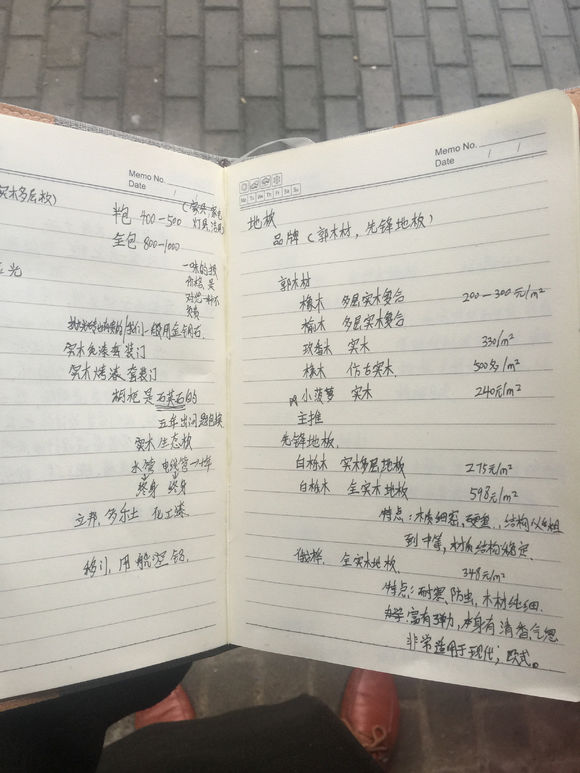 Memo No.
Date / /
实木多层板)
半包 400-500 (家具 家电
灯具 洁具)
全包 800-1000
一味的找
价格 是
对他一种不
我们一般用金钢石.
实木免漆套装门
实木烤漆套装门
橱柜是石英石的
五年出问题包换
实木生态板
水管 电线管一对年
终身 终身
立邦,多尔士 化工漆
移门,用航空铝
Memo No.
Date / /
Mo Tu We Th Fr Sa Su
地板
品牌(郭木材,先锋地板)
郭木材
橡木 多层实木复合 200-300元/m²
榆木 多层实木复合
玫香木 实木 330/m²
橡木 仿古实木. 500多/m²
小菠萝 实木 240元/m²
主推
先锋地板.
白栎木 实木多层地板 275元/m²
白栎木 全实木地板 598元/m²
特点:木质细密,硬重.,结构从粗
到中等,材质结构稳定.
俄桦. 全实木地板 348元/m²
特点:耐寒、防虫,木材纯细.
富有弹力,本身有清香气息
非常适用于现代;欧式。